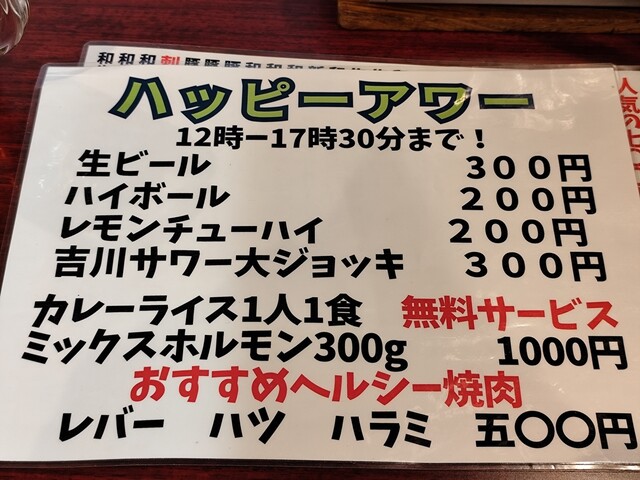 和和和刺豚豚豚和和和
ハッピーアワー
12時ー17時30分まで！
生ビール ３００円
ハイボール ２００円
レモンチューハイ ２００円
吉川サワー大ジョッキ ３００円
カレーライス1人1食 無料サービス
ミックスホルモン300g 1000円
おすすめヘルシー焼肉
レバー ハツ ハラミ 五〇〇円
人気の